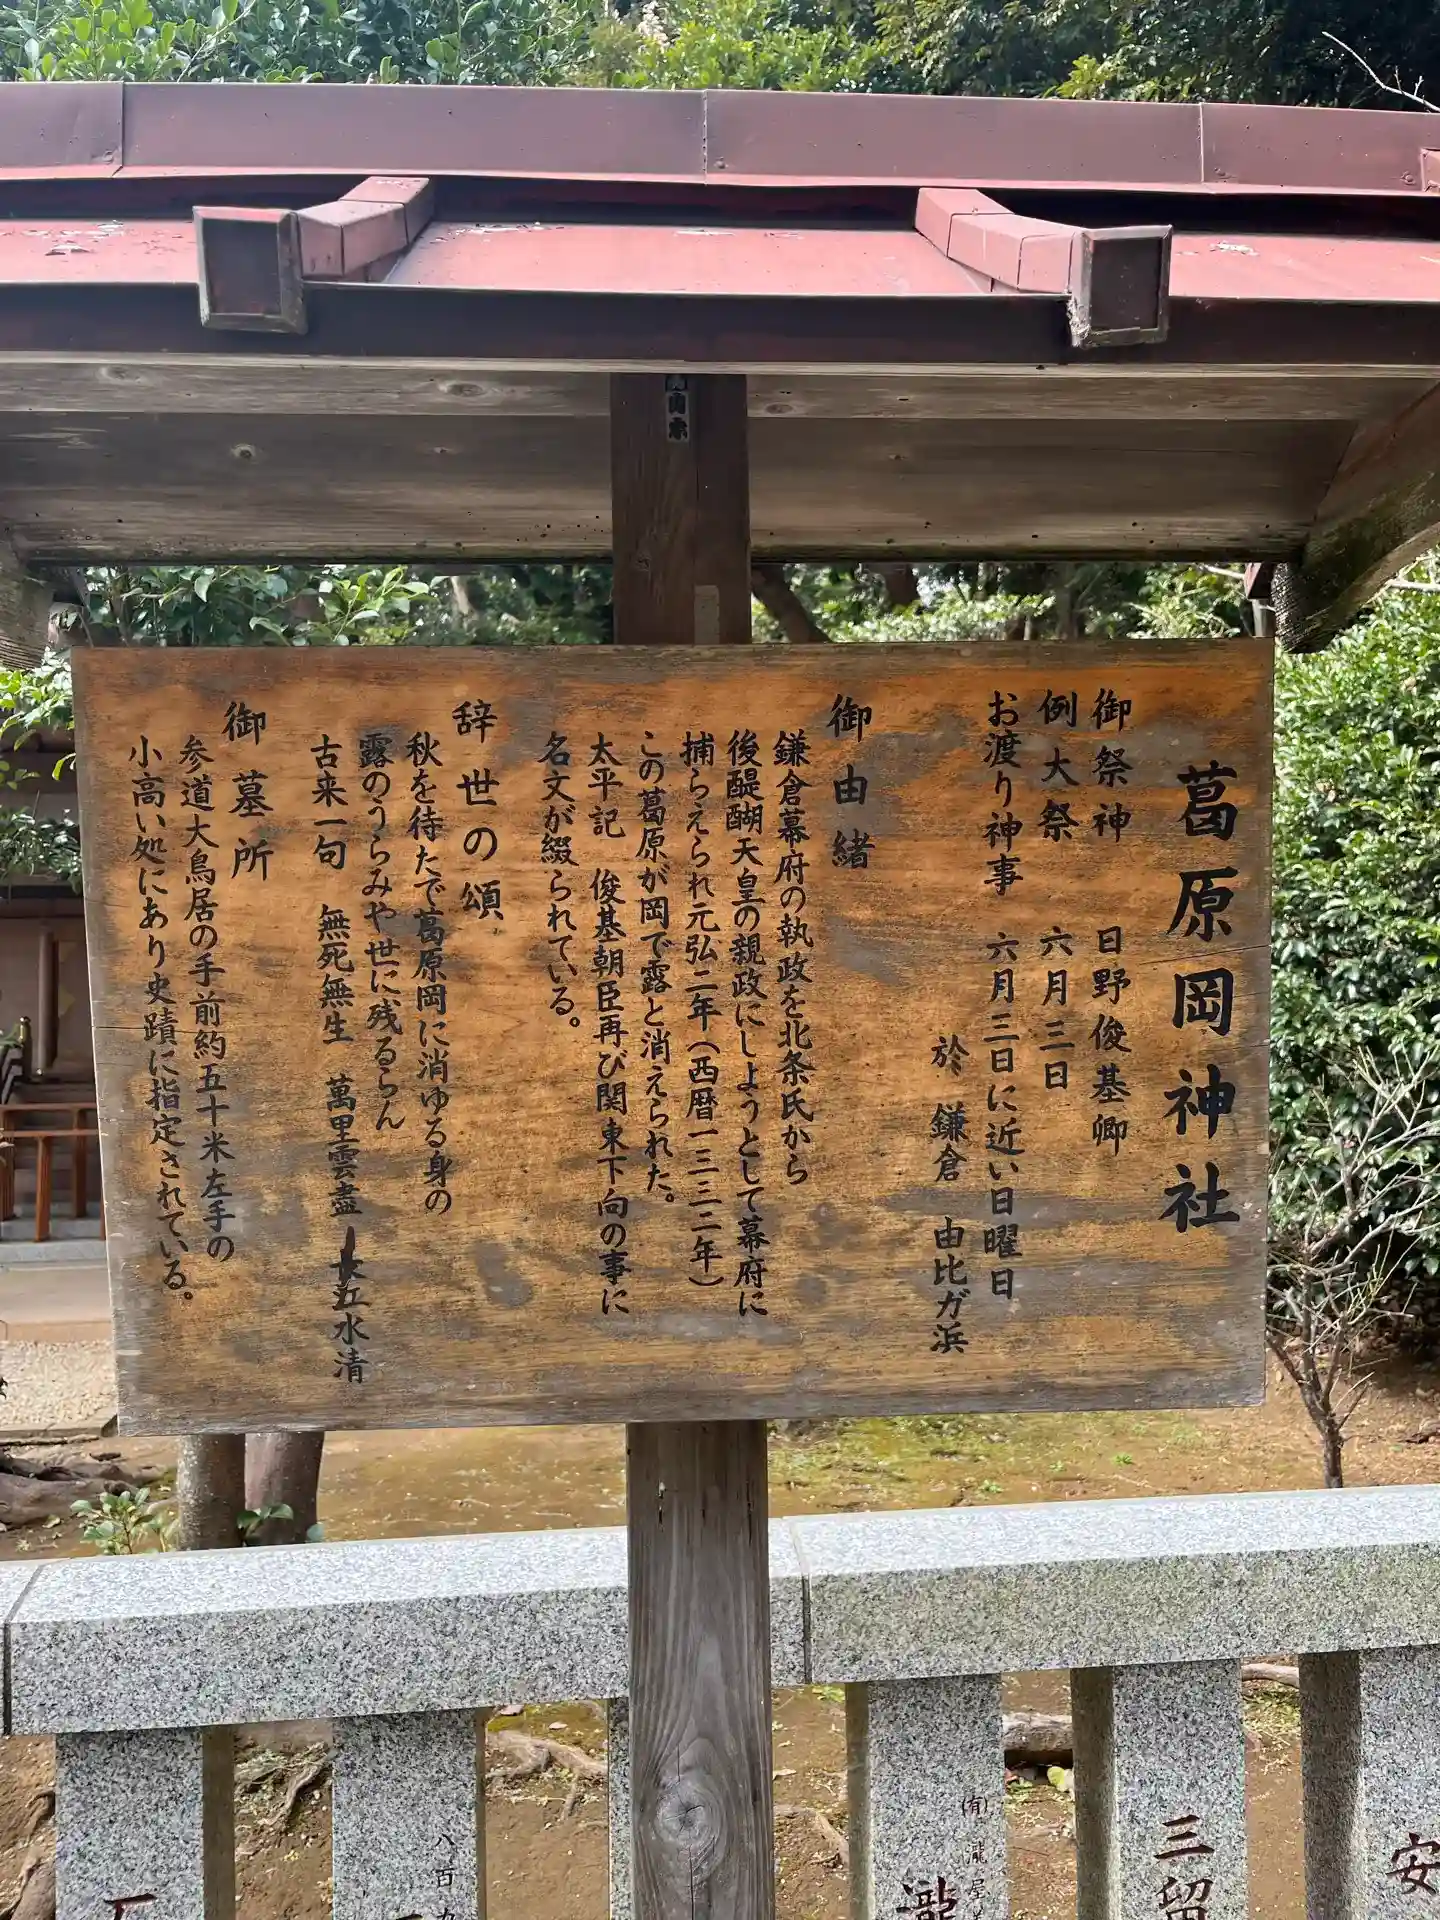 葛原岡神社
御祭神 日野俊基卿
例大祭 六月三日
お渡り神事 六月三日に近い日曜日
於 鎌倉 由比ガ浜
御由緒
鎌倉幕府の執政を北条氏から
後醍醐天皇の親政にしようとして幕府に
捕らえられ元弘二年(西暦一三三二年)
この葛原が岡で露と消えられた。
太平記 俊基朝臣再び関東下向の事に
名文が綴られている。
辞世の頌
秋を待たで葛原岡に消ゆる身の
露のうらみや世に残るらん
古来一句 無死無生 萬里雲盡 長江水清
御墓所
参道大鳥居の手前約五十米左手の
小高い処にあり史蹟に指定されている。
安
三留
(有)瀧屋
瀧
八百